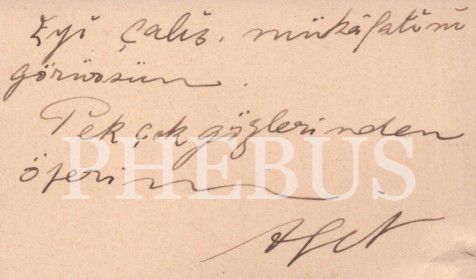 Eyi çaliş. mükâfatını
görürsün.
Pek çok gözlerinden
öperim
PHEBUS